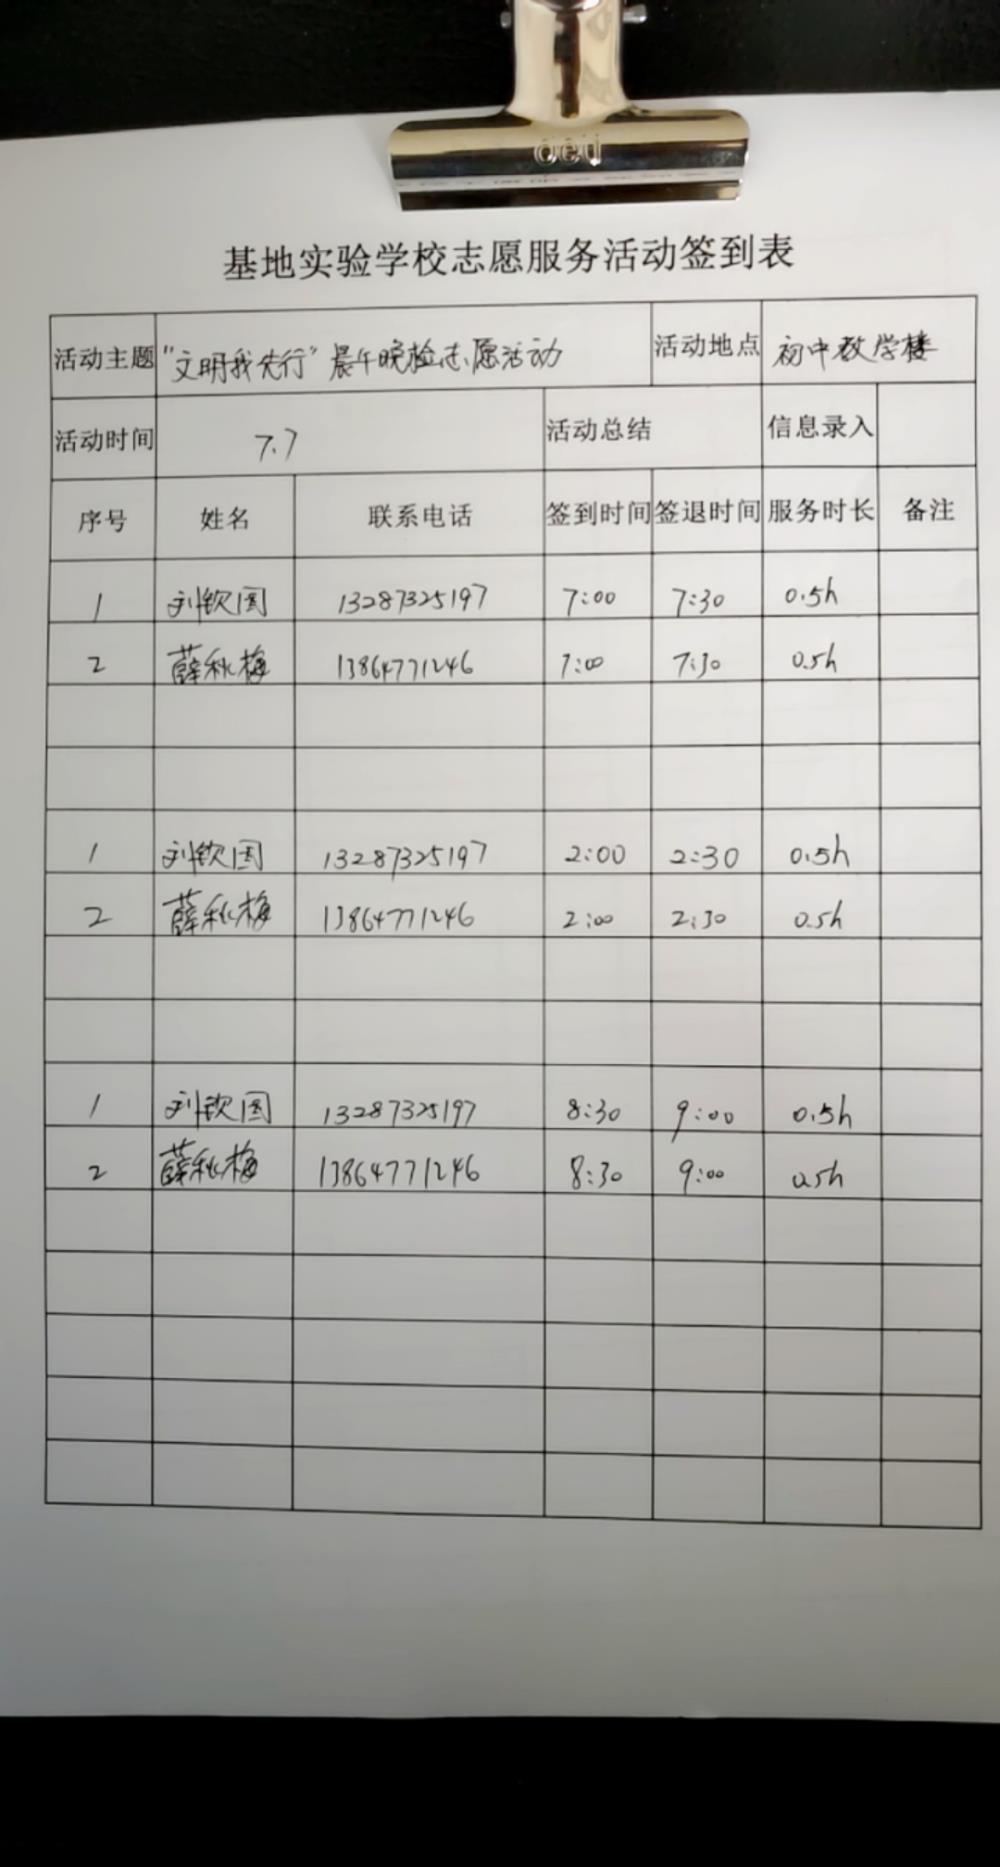 deli
基地实验学校志愿服务活动签到表
活动主题 "文明我先行"晨午晚检志愿活动 活动地点 初中教学楼
活动时间 7.7 活动总结 信息录入
序号 姓名 联系电话 签到时间 签退时间 服务时长 备注
1 刘钦国 13287325197 7:00 7:30 0.5h
2 薛秋梅 13864771246 7:00 7:30 0.5h
1 刘钦国 13287325197 2:00 2:30 0.5h
2 薛秋梅 13864771246 2:00 2:30 0.5h
1 刘钦国 13287325197 8:30 9:00 0.5h
2 薛秋梅 13864771246 8:30 9:00 0.5h